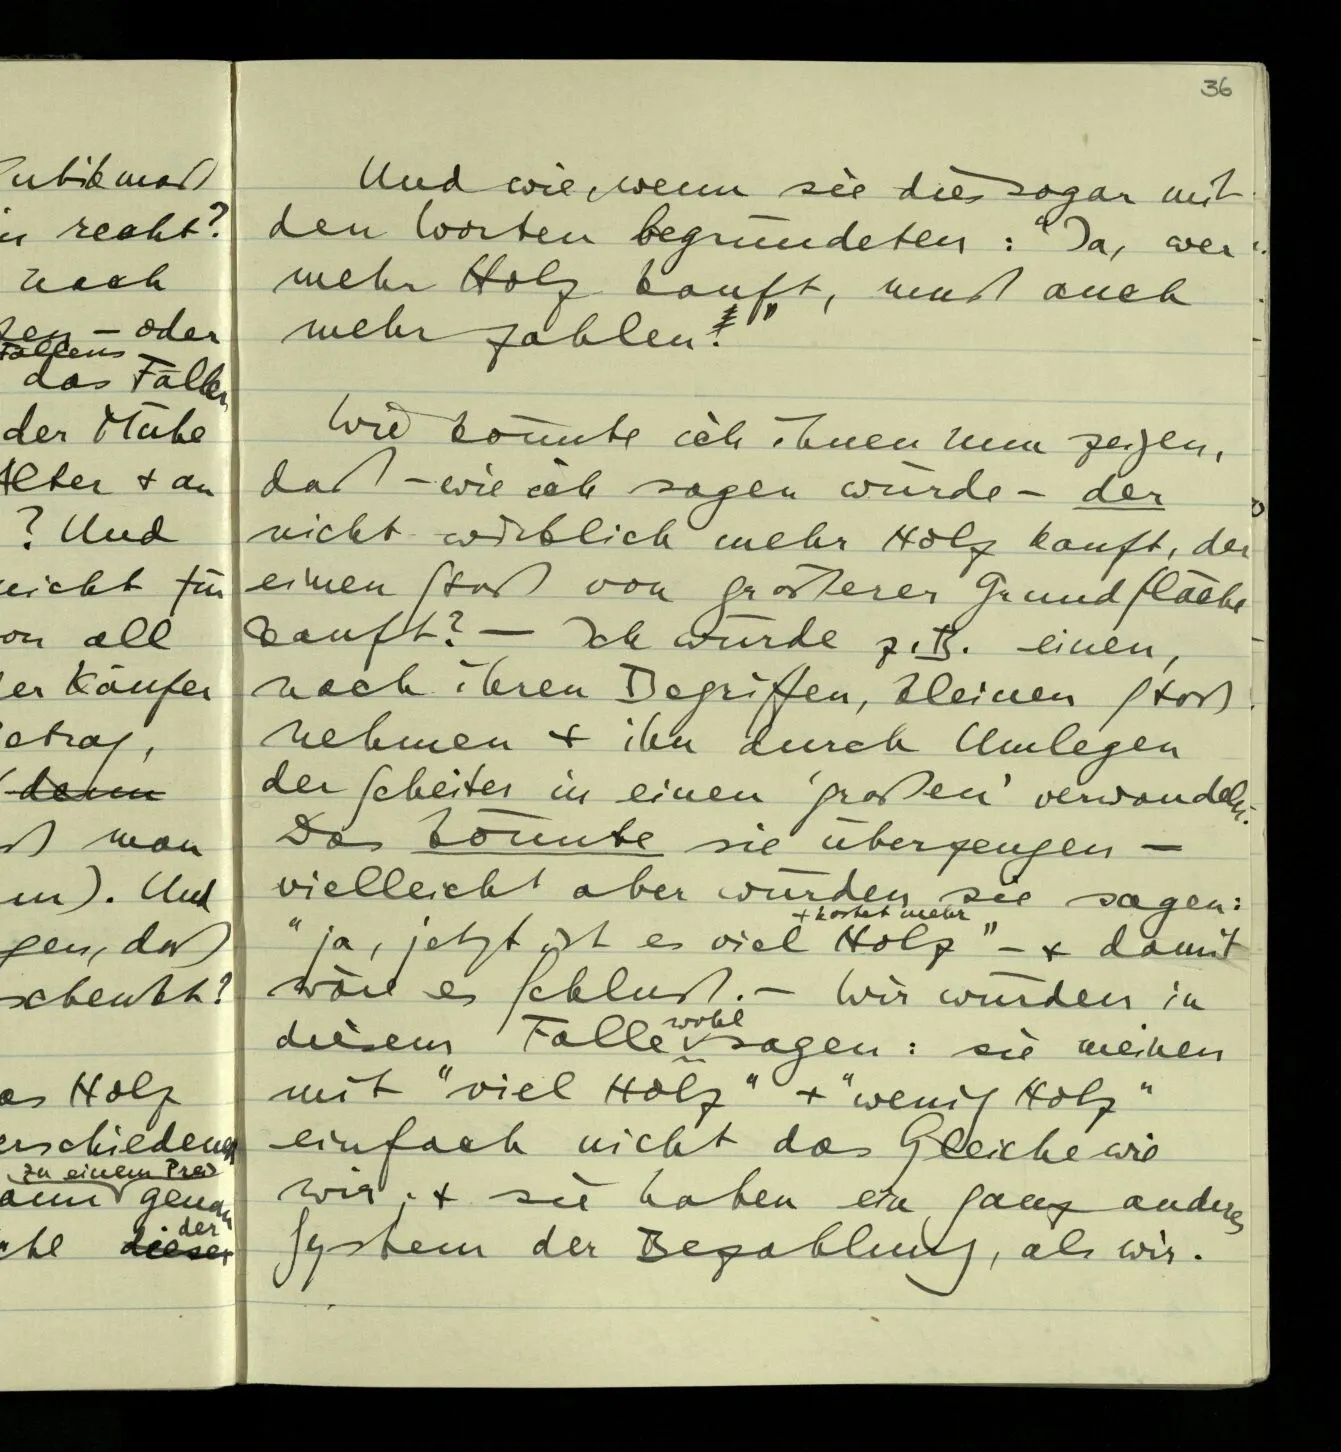 36
Und wie, wenn sie dies sogar mit
den Worten begründeten: "Ja, wer
mehr Holz kauft, muß auch
mehr zahlen!"
Wie könnte ich ihnen nun zeigen,
daß – wie ich sagen würde – der
nicht wirklich mehr Holz kauft, der
einen Stoß von größerer Grundfläche
kauft? – Ich würde z.B. einen,
nach ihren Begriffen, kleinen Stoß
nehmen + ihn durch Umlegen
der Scheiter in einen 'großen' verwandeln.
Das könnte sie überzeugen –
vielleicht aber würden sie sagen:
+ kostet mehr
"ja, jetzt ist es viel Holz" – + damit
wäre es Schluß. – Wir würden in
wohl
diesem Falle sagen: sie meinen
mit "viel Holz" + "wenig Holz"
einfach nicht das Gleiche wie
wir; + sie haben ein ganz anderes
System der Bezahlung, als wir.
Kubikmaß
recht?
nach
– oder
Fällens
das Fällen
der Mühe
Alter + an
? Und
nicht für
all
Käufer
denn
man
). Und
daß
Holz
zu einem Preis
genau
der
dieser